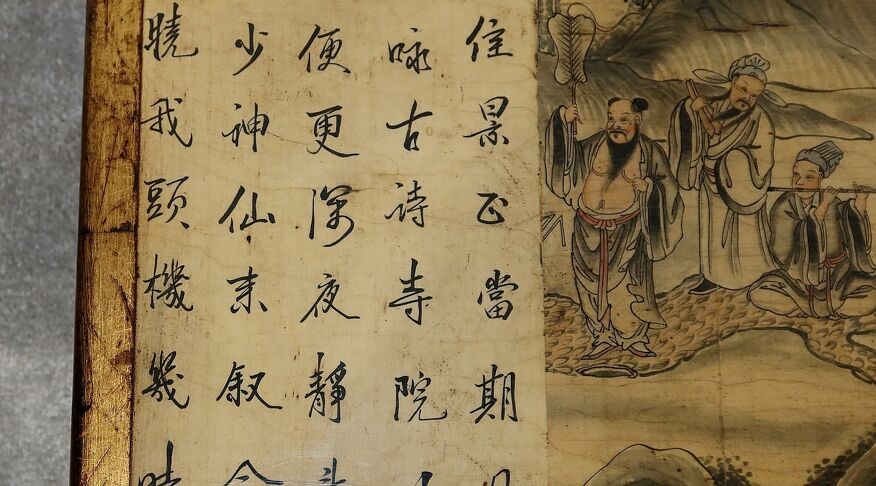 住景正當期
咏古詩寺院
便更深夜靜
少神仙末叙
曉我頭機幾